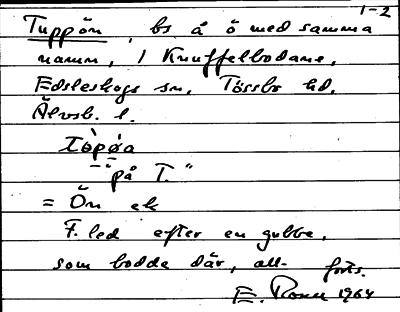 1-2
Tuppön, bs å ö med samma
namn, i Knuffelbodane,
Edsleskogs sn, Tössbo hd,
Älvsb. l.
"på T."
= Ön ek
F. led efter en gubbe,
som bodde där, all- forts.
E. 1964